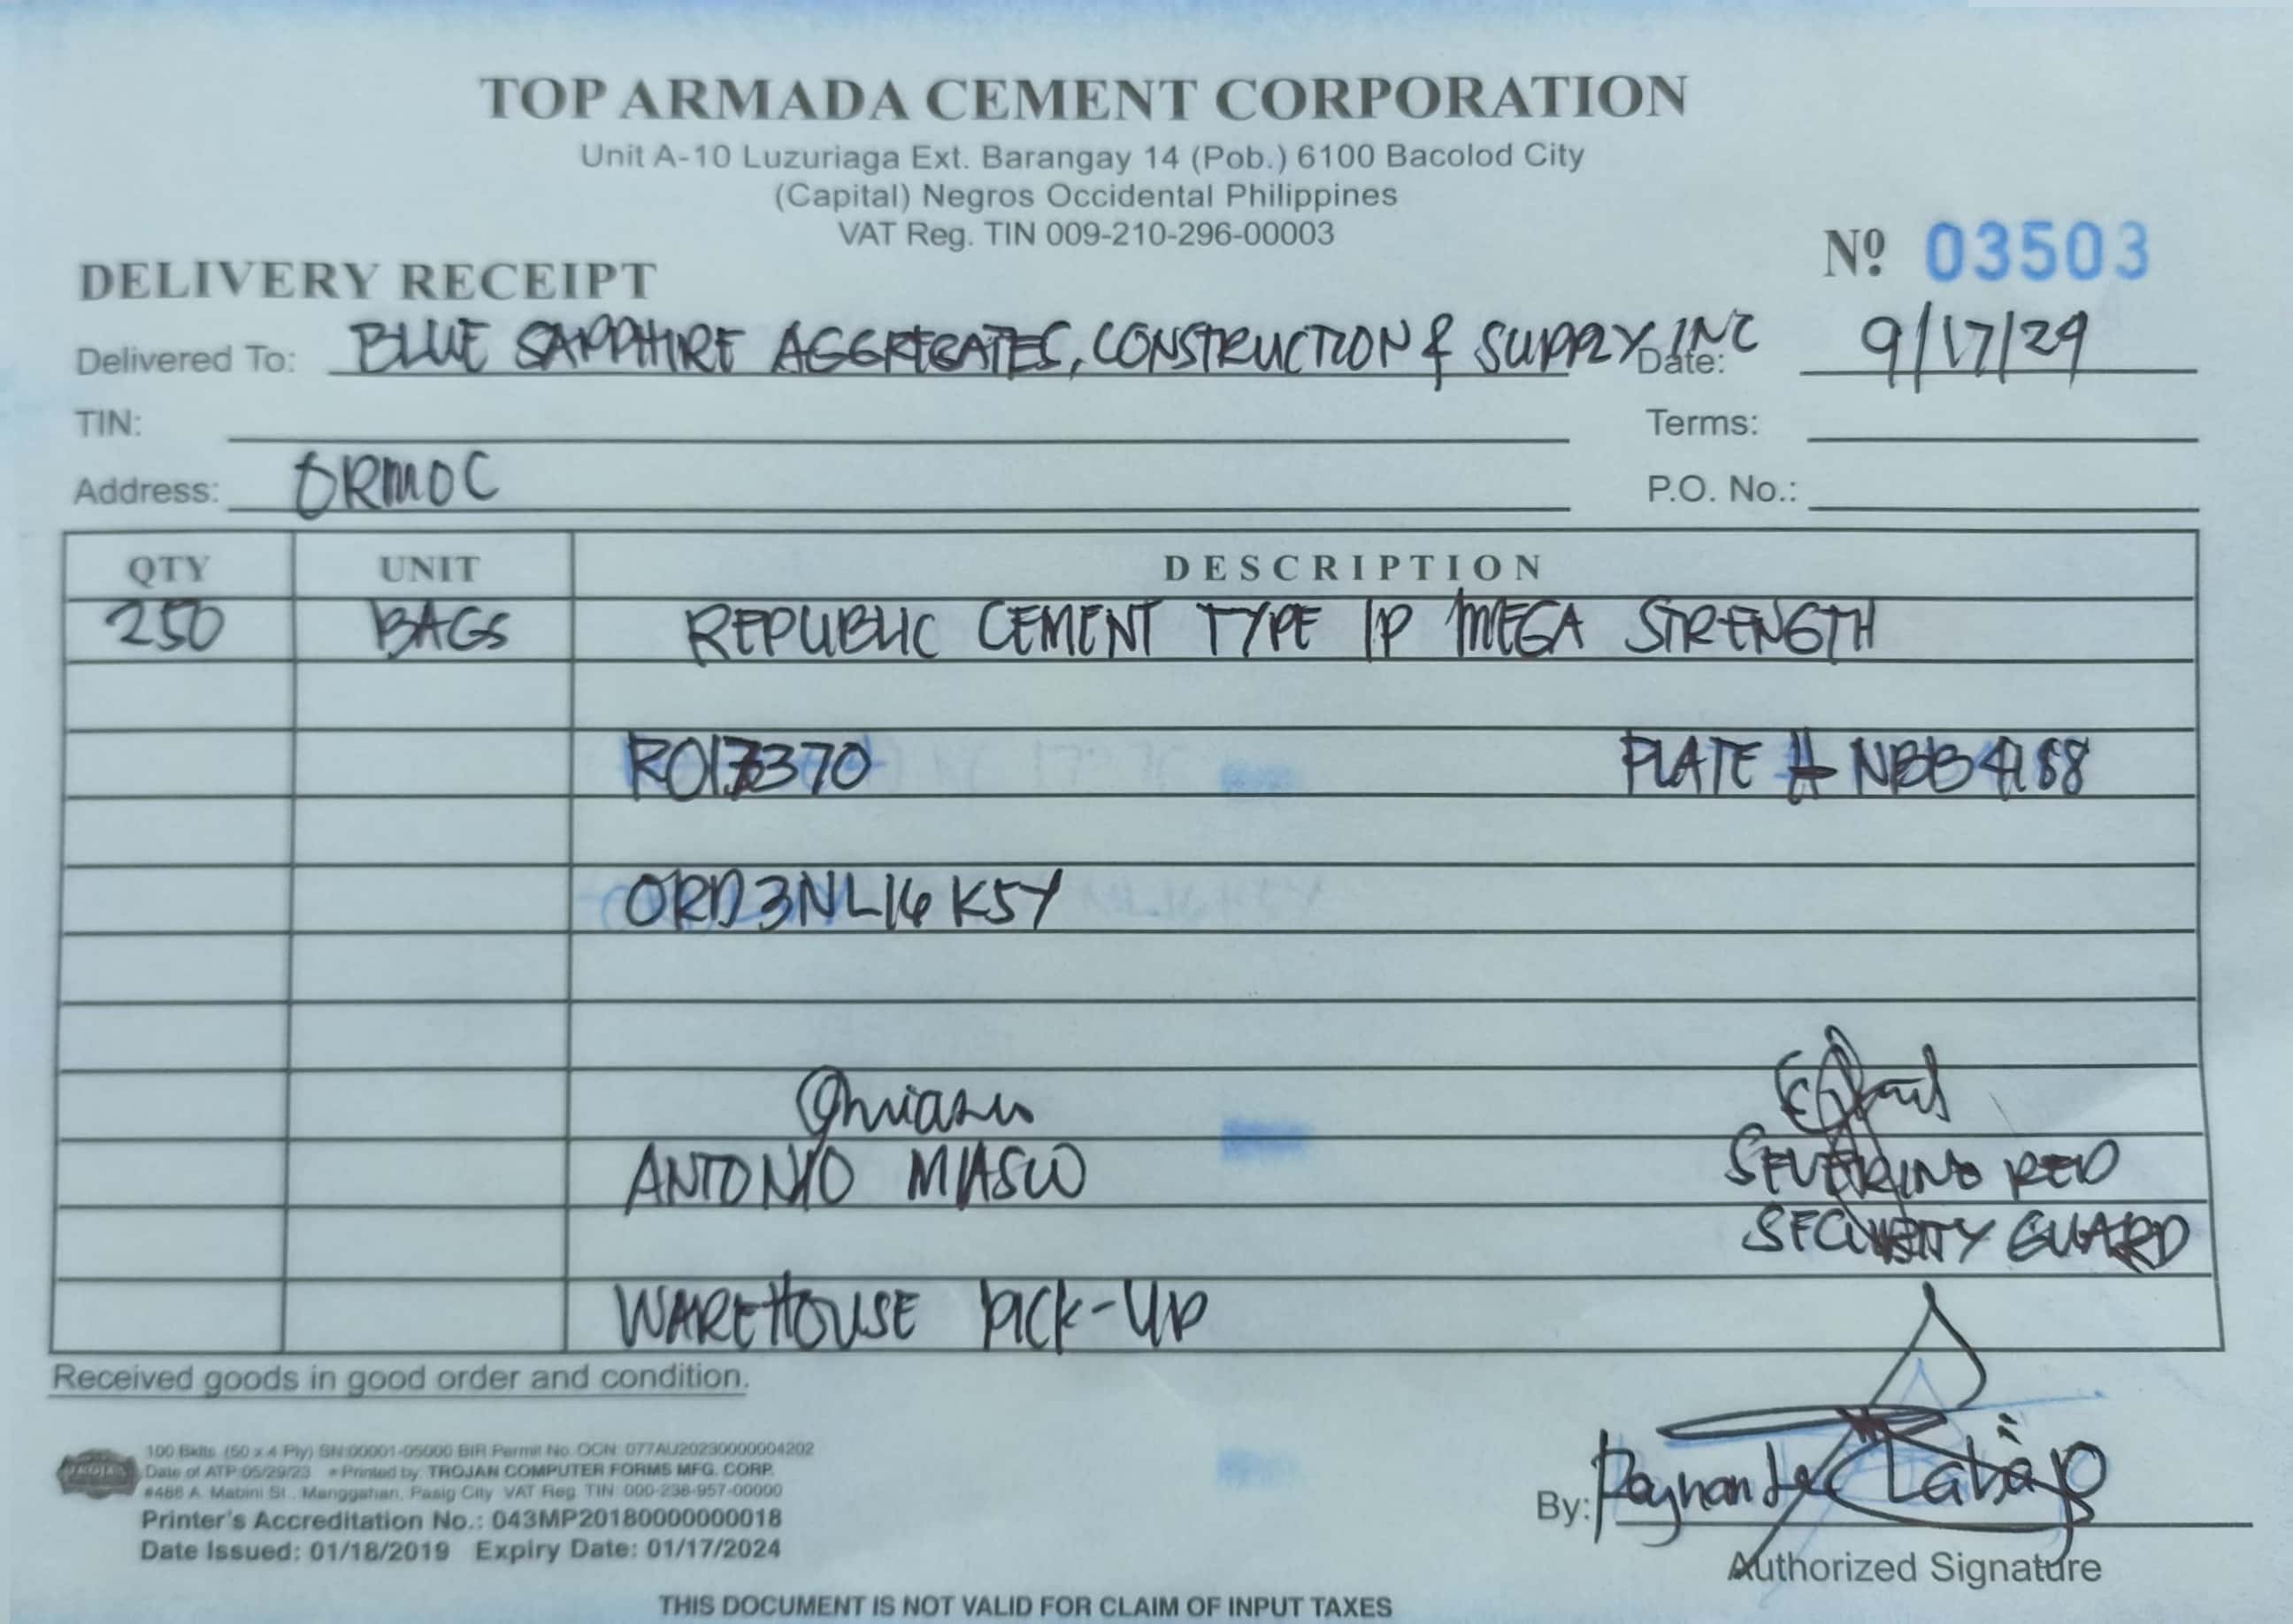 TOP ARMADA CEMENT CORPORATION
Unit A-10 Luzuriaga Ext. Barangay 14 (Pob.) 6100 Bacolod City
(Capital) Negros Occidental Philippines
VAT Reg. TIN 009-210-296-00003
Nº 03503
DELIVERY RECEIPT
Delivered To: BLUE SAPPHIRE AGGREGATES, CONSTRUCTION & SUPPLY, INC Date: 9/17/29
TIN: Terms:
Address: ORMOC P.O. No.:
QTY UNIT DESCRIPTION
250 BAGS REPUBLIC CEMENT TYPE 1P MEGA STRENGTH
PLATE #
ORD3NL16K5Y
ANTONIO MIASCO SEVERINO RED
SECURITY GUARD
WAREHOUSE PICK-UP
Received goods in good order and condition.
100 Bklts. (50 x 4 Ply) SN:00001-05000 BIR Permit No. OCN: 077AU20230000004202
Date of ATP:05/29/23 • Printed by: TROJAN COMPUTER FORMS MFG. CORP.
#488 A. Mabini St., Manggahan, Pasig City VAT Reg. TIN 000-238-957-00000
Printer's Accreditation No.: 043MP20180000000018
Date Issued: 01/18/2019 Expiry Date: 01/17/2024
By:
Authorized Signature
THIS DOCUMENT IS NOT VALID FOR CLAIM OF INPUT TAXES